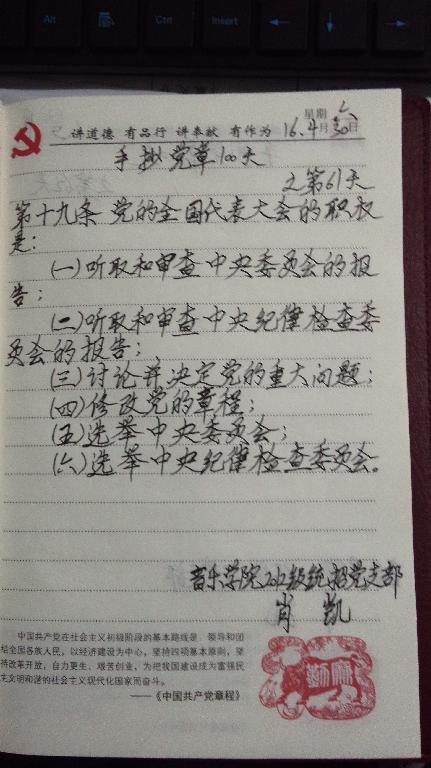 Alt
Ctrl
Insert
讲道德 有品行 讲奉献 有作为
星期六
16.4月30日
手抄党章100天
之第61天
第十九条 党的全国代表大会的职权
是：
(一)听取和审查中央委员会的报
告；
(二)听取和审查中央纪律检查委
员会的报告；
(三)讨论并决定党的重大问题；
(四)修改党的章程；
(五)选举中央委员会；
(六)选举中央纪律检查委员会。
音乐学院2012级统招党支部
肖凯
中国共产党在社会主义初级阶段的基本路线是：领导和团
结全国各族人民，以经济建设为中心，坚持四项基本原则，坚
持改革开放，自力更生，艰苦创业，为把我国建设成为富强民
主文明和谐的社会主义现代化国家而奋斗。
——《中国共产党章程》